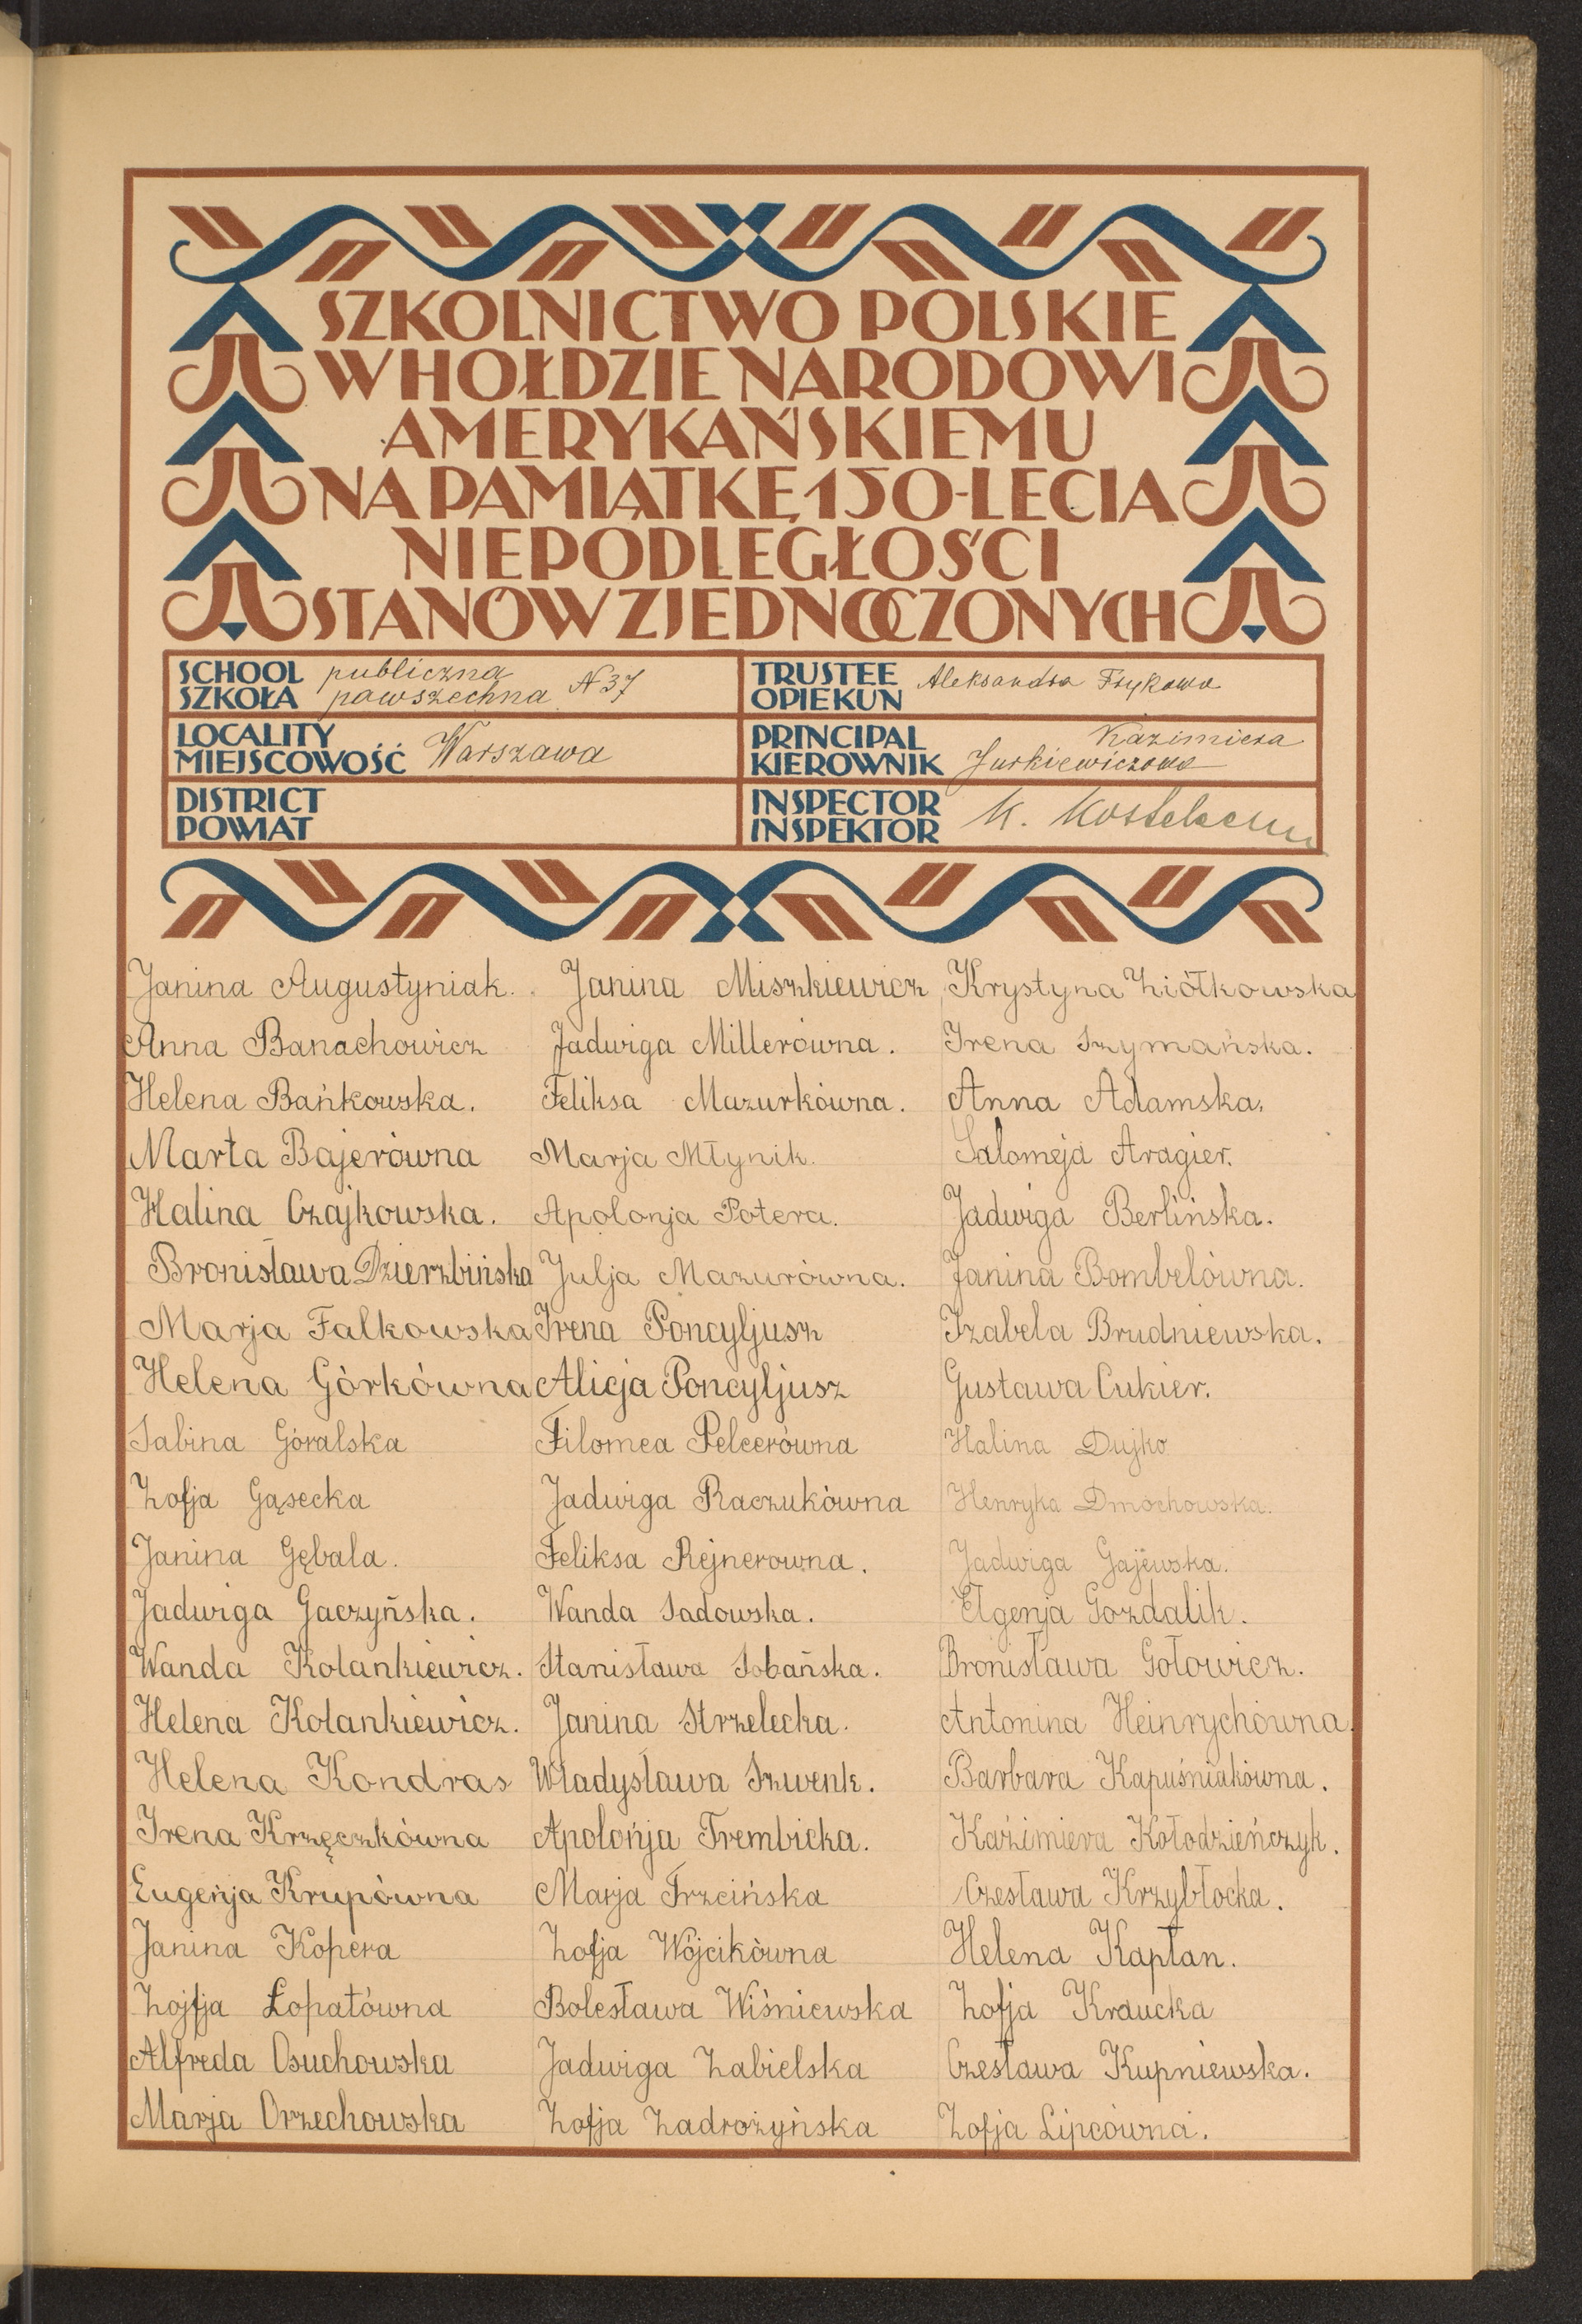 SZKOLNICTWO POLSKIE
W HOŁDZIE NARODOWI
AMERYKAŃSKIEMU
NA PAMIĄTKĘ 150-LECIA
NIEPODLEGŁOŚCI
STANÓW ZJEDNOCZONYCH
SCHOOL publiczna
SZKOŁA powszechna N 37
TRUSTEE
OPIEKUN Aleksandra
LOCALITY
MIEJSCOWOŚĆ Warszawa
PRINCIPAL Kazimiera
KIEROWNIK Jurkiewiczowa
DISTRICT
POWIAT
INSPECTOR
INSPEKTOR K.
Janina Augustyniak.
Anna Banachowicz
Helena Bańkowska.
Marta Bajerówna
Halina Czajkowska.
Bronisława Dzierzbińska
Marja Falkowska
Helena Górkówna
Sabina Góralska
Zofja Gąsecka
Janina Gębala.
Jadwiga Gaczyńska.
Wanda Kolankiewicz.
Helena Kolankiewicz.
Helena Kondras
Irena Krzęczkówna
Eugenja Krupówna
Janina Kopera
Zojfja Łopatówna
Alfreda Osuchowska
Marja Orzechowska
Janina Miszkiewicz
Jadwiga Millerówna.
Feliksa Mazurkówna.
Marja Młynik.
Apolonja Potera.
Julja Mazurówna.
Irena Poncyljusz
Alicja Poncyljusz
Filomea Pelcerówna
Jadwiga Raczukówna
Feliksa Rejnerowna.
Wanda Sadowska.
Stanisława Sobańska.
Janina Strzelecka.
Władysława Szwenk.
Apolonja Trembicka.
Marja Trzcińska
Zofja Wójcikówna
Bolesława Wiśniewska
Jadwiga Zabielska
Zofja Zadrożyńska
Krystyna Ziółkowska
Irena Szymańska.
Anna Adamska.
Salomeja Aragier.
Jadwiga Berlińska.
Janina Bombelówna.
Izabela Brudniewska.
Gustawa Cukier.
Halina Dujko
Henryka Dmochowska.
Jadwiga Gajewska.
Elgenja Gozdalik.
Bronisława Gołowicz.
Antonina Heinrychówna.
Barbara Kapuśniakówna.
Kazimiera Kołodzieńczyk.
Czesława Krzybłocka.
Helena Kapłan.
Zofja Kraucka
Czesława Kupniewska.
Zofja Lipcówna.